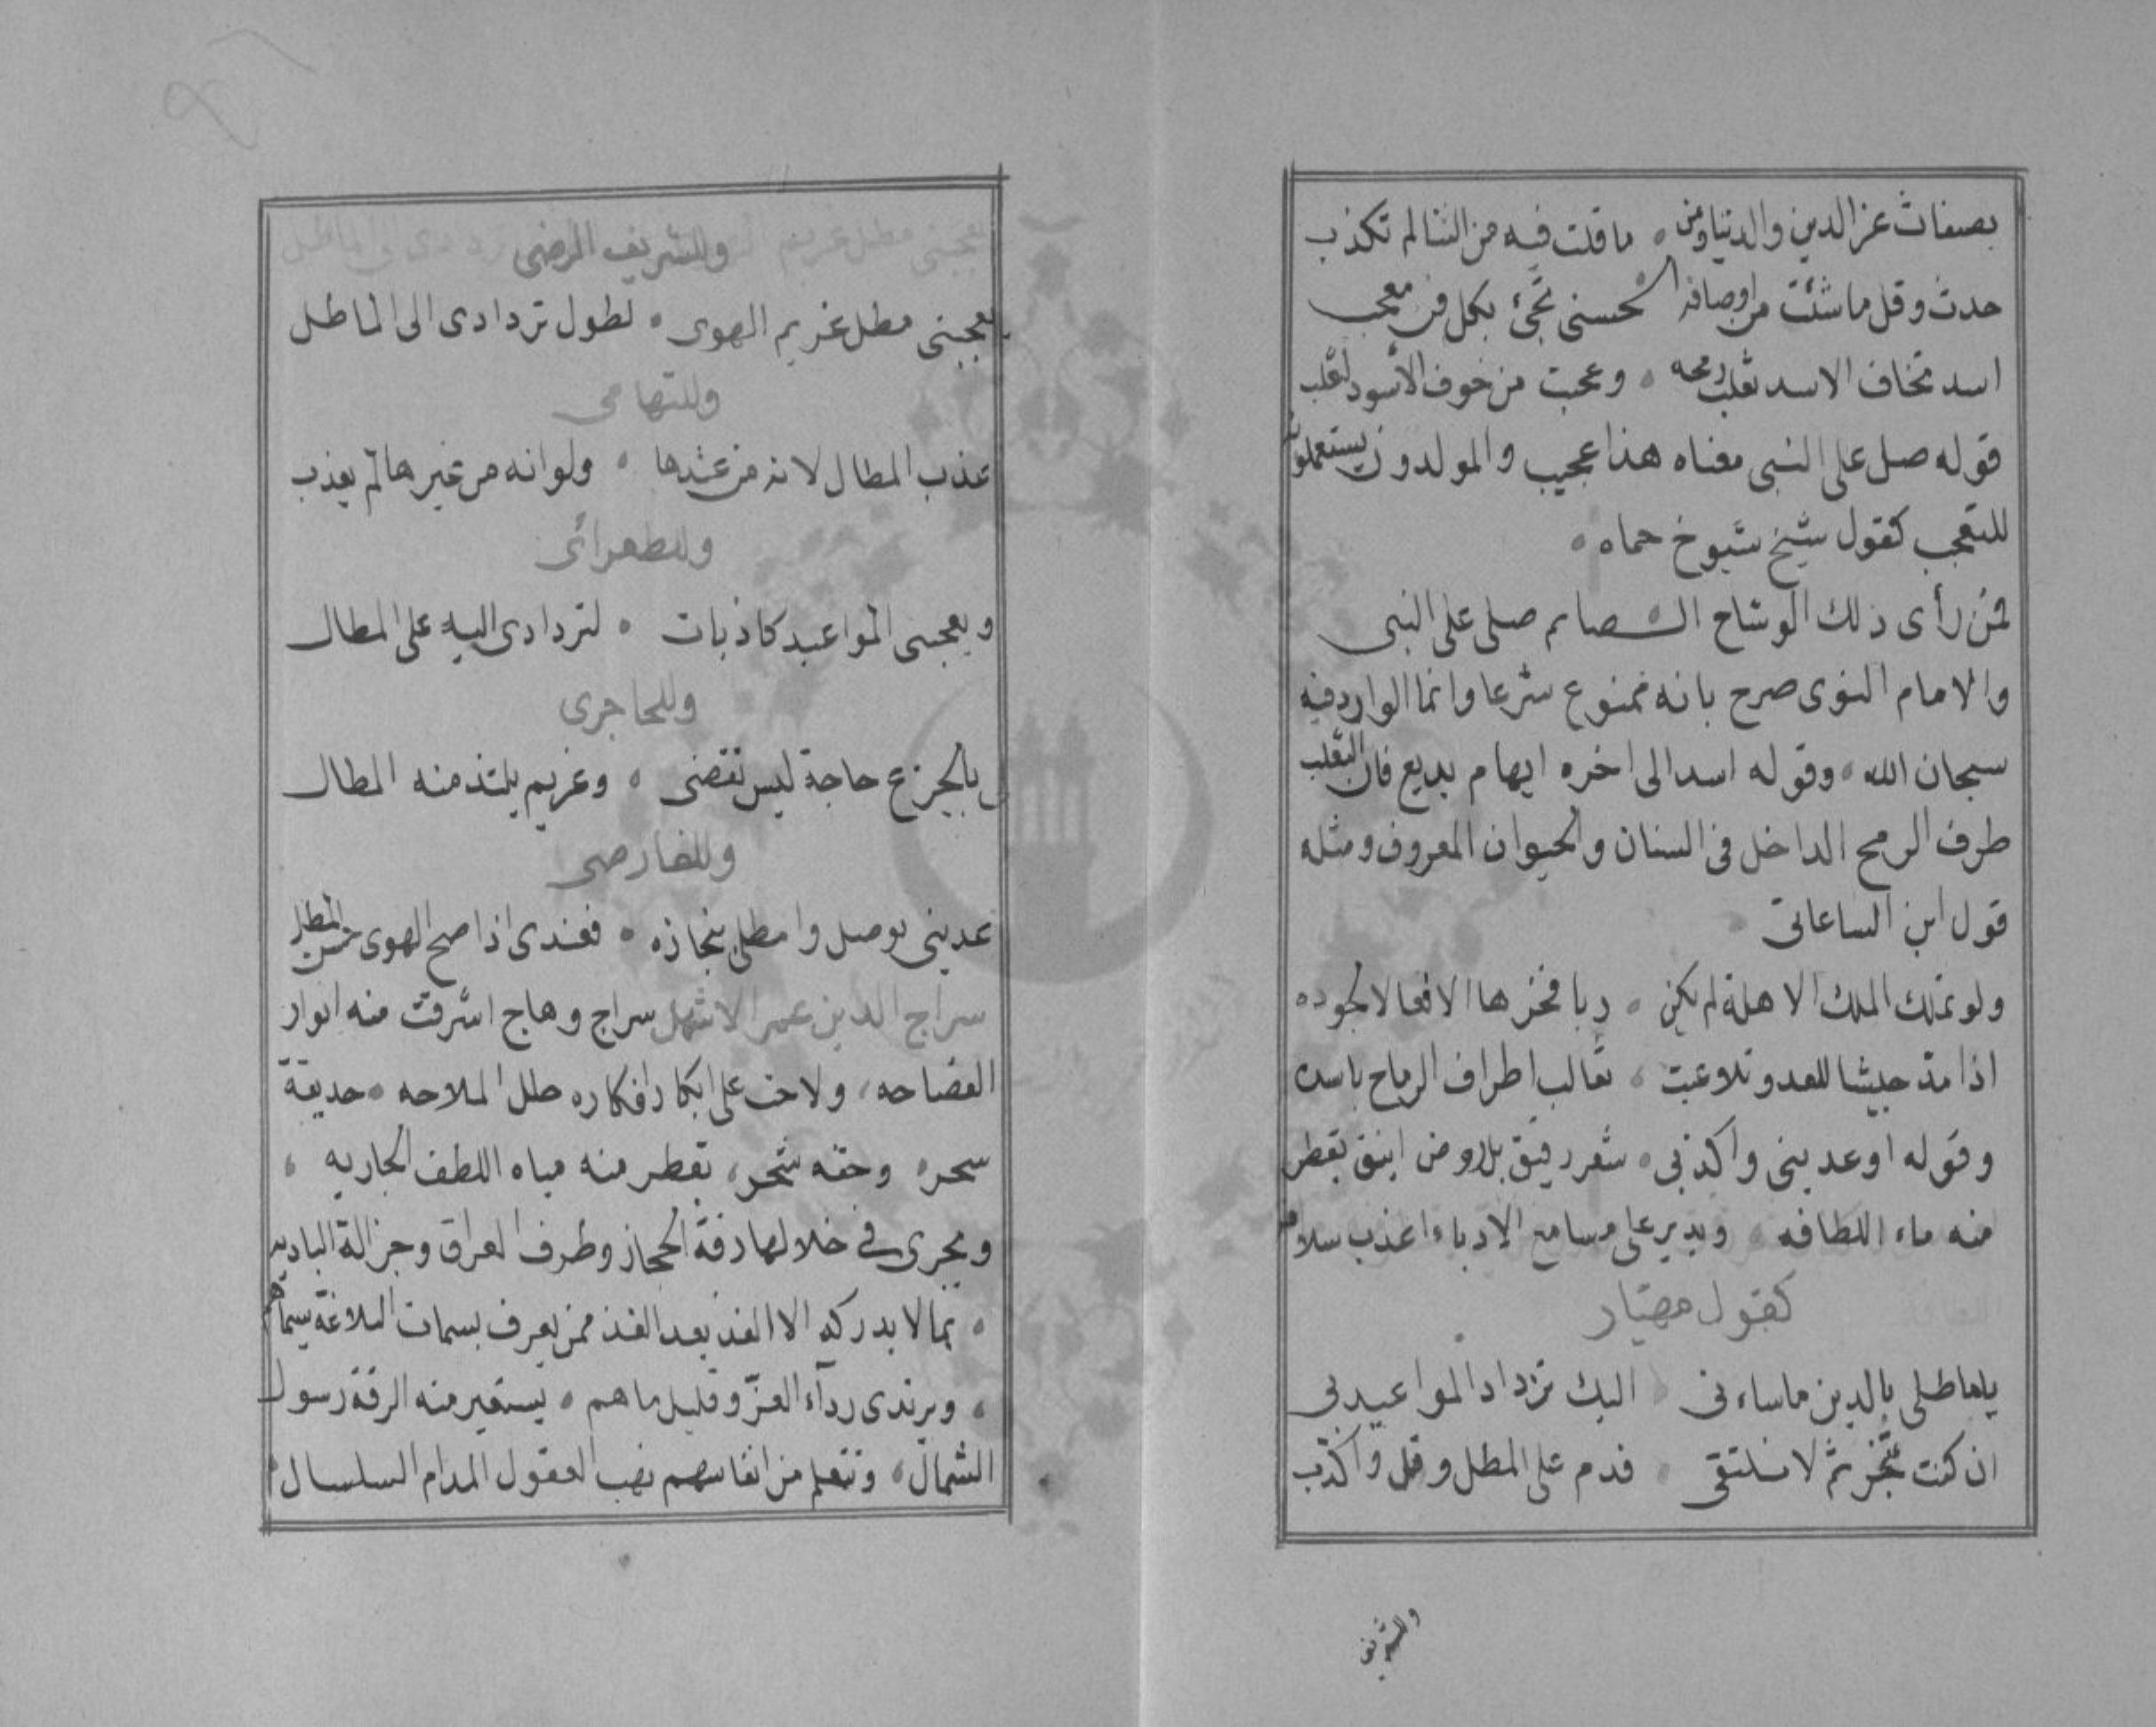 بصفات عز الدين والدنيا ومن ۰ ما قلت فيه من الثنا لم تكذب
حدث وقل ما شئت من اوصافه ۰ الحسنى تجئ بكل فن معجب
اسد تخاف الاسد ثعلب رمحه ۰ وعجبت من خوف الاسود لثعلب
قوله صل على النبى معناه هذا عجيب والمولدون يستعملونه
للتعجب كقول شيخ شيوخ حماه ۰
فمن رأى ذلك الوشاح الـصايم صلى على النبى
والامام النوى صرح بانه ممنوع شرعا وانما الوارد فيه
سبحان الله ۰ وقوله اسد الى اخره ايهام بديع فان الثعلب
طرف الرمح الداخل فى السنان والحيوان المعروف ومثله
قول ابن الساعاتى
ولو تملك الملك الاهلة لم يكن ۰ ربا فخرها الا فعالا لجوده
اذا مد جيشا للعدو تلاعبت ۰ ثعالب اطراف الرماح باسده
وقوله اوعدينى واكذبى ۰ شعر رقيق بل روض انيق تقطر
منه ماء اللطافه ۰ ويدير على مسامع الادباء اعذب سلافه
كقول مهيار
يا ماطلى بالدين ما ساءنى ۰ اليك ترداد المواعيد بى
ان كنت تنجز ثم لا نلتقى ۰ فدم على المطل وقل واكذب
وللشريف
وللشريف الرضى
يعجبنى مطل غريم الهوى ۰ لطول تردادى الى الماطل
وللتهامى
عذب المطال لانه من عندها ۰ ولو انه من غيرها لم يعذب
وللطغرائى
ويعجبنى المواعيد كاذبات ۰ لتردادى اليه على المطال
وللحاجرى
لى بالجزع حاجة ليس تقضى ۰ وغريم يلتذ منه المطال
وللفارضى
عدينى بوصل وامطلى بنجازه ۰ فعندى اذا صح الهوى حسن المطل
سراج الدين عمر الاشهل سراج وهاج اشرقت منه انوار
الفصاحه ، ولاحت على ابكار افكاره حلل الملاحه ۰ حديقة
سحره وحقه شحر ، تقطر منه مياه اللطف الجاريه ،
ويجرى فى خلالها رقة الحجاز وظرف العراق وجزالة الباديه
۰ بما لا يدركه الا الفذ بعد الفذ ممن يعرف بسمات البلاغة سيماهم
، ويرتدى ردآء العز وقليل ما هم ۰ يستعير منه الرقة رسول
الشمال ۰ وتتعلم من انفاسهم نهب العقول المدام السلسال ۰